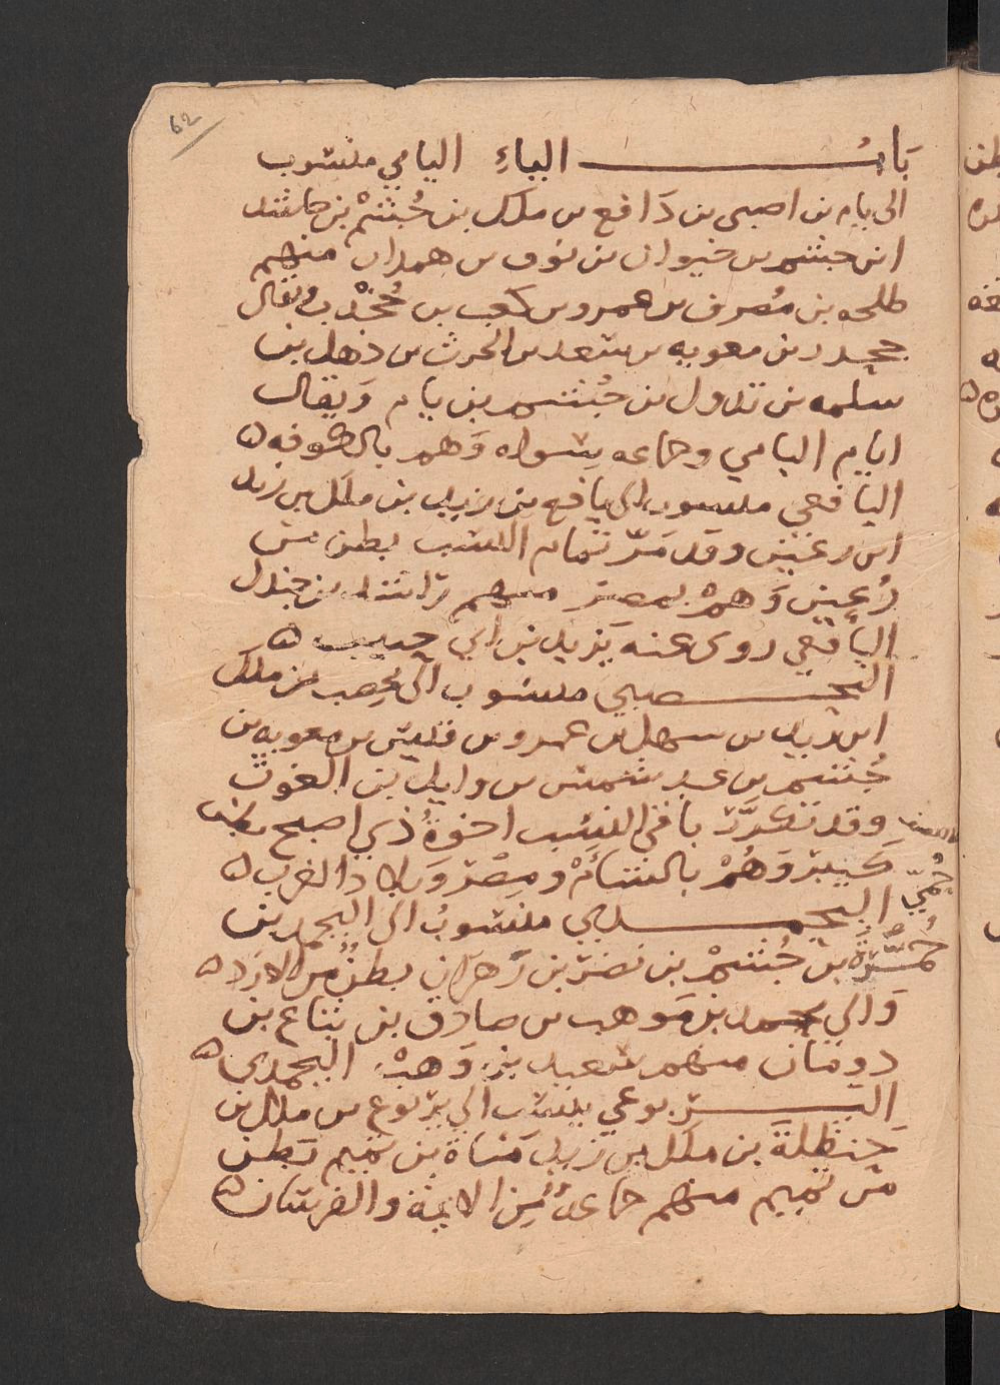 62
بَابُ الياءِ اليامي منسوب
الى يام بن اصبى بن دَافع بن ملك بن جُشَمْ بن حاشد
ابن جشم بن خيوان بن نوف بن همدان منهم
طلحه بن مُصرف بن عمرو بن كعب بن جُخْدُب ويقال
جحدر بن معويه بن سعد بن الحرث بن ذهل بن
سلمه بن تدول بن جُشم بن يام وَيقال
ايام اليامي وجماعه سواه وَهم بالكوفه ه
اليافعي منسوب الى يافع بن زيد بن ملك بن زيد
ابن رعين وقد مَرّ تمام النسب بطن من
رُعين وَهمْ بمصر منهم راشد بن جندل
اليافعي روى عنه يَزيد بن ابي حبيب ه
اليحصبي منسوب الى يحصب بن ملك
ابن زيد بن سهل بن عمرو بن قيس بن معويه بن
جُشم بن عبد شمس بن وايل بن الغوث
وقد تكرَّر باقى النسب اخوةُ ذي اصبح بطن
كبير وَهُمْ بالشأمْ ومِصْر وَبلاد الغرب ه
حُمّي
اليحمدي منسوبُ الى اليحمد بن
حُمَّى بن جُشَمْ بن نصر بن زَهران بطنٌ من الازد ه
وَالى يحمد بن مَوهب بن صادق بن يناع بن
دومان منهم سعيد بن وَهبْ اليحمدي ه
اليربوعي ينسب الى يربوع بن ملك بن
حَنظلة بن ملك بن زيد مَناة بن تميم بَطن
من تميم منهم جماعةٌ مِن الايمة والفرسان ه